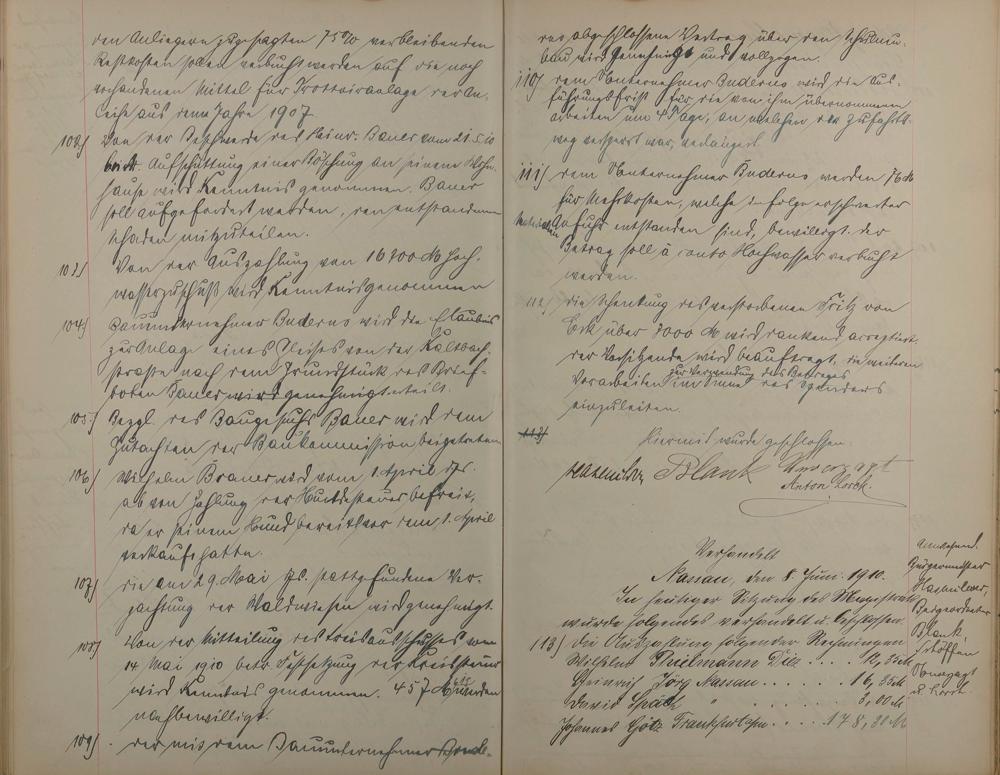 den Anliegern zugesagten 75% verbleibenden
Restkosten sollen verbucht werden auf die noch
vorhandenen Mittel für Trottoiranlage der An-
leihe aus dem Jahre 1907
102) Von der Beschwerde des Heinr. Bauer vom 21.5.10
betr. Aufschüttung einer Böschung an seinem Wohn-
hause wird Kenntnis genommen. Bauer
soll aufgefordert werden, den entstandenen
Schaden mitzuteilen.
103) Von der Auszahlung von 16200 M Hoch-
wasserzuschuß wird Kenntnis genommen
104) Bauunternehmer Buderus wird die Erlaubnis
zur Anlage eines Gleises von der Kaltbach-
strasse nach dem Grundstück des Brief-
boten Bauer wird genehmigt erteilt.
105) Bezgl. des Baugesuchs Bauer wird dem
Gutachten der Baukommission beigetreten
106) Wilhelm Bauer wird vom 1. April ds.
ab von Zahlung der Hundesteuer befreit,
da er seinen Hund bereits vor dem 1. April
verkauft hatte.
107) die am 29. Mai ds. stattgefundene Ver-
pachtung der Waldwiesen wird genehmigt.
108) Von der Mitteilung des Kreisausschusses vom
14 Mai 1910 betr. Festsetzung der Kreissteuer
wird Kenntnis genommen. 457 M werden
nachbewilligt.
109) der mit dem Bauunternehmer Bude-
rus abgeschlossene Vertrag über den Schulneu-
bau wird genehmigt und vollzogen.
110) dem Unternehmer Buderus wird die Aus-
führungsfrist für die von ihm übernommenen
Arbeiten um 4 Tage, an welchen der Zufahrts-
weg versperrt war, verlängert
111) dem Unternehmer Buderus werden 76 M
für Mehrkosten, welche infolge erschwerter
Anfuhr entstanden sind, bewilligt. der
Betrag soll à conto Hochwasser verbucht
werden.
112) die Schenkung des verstorbenen Fritz von
Eck über 1000 M wird dankend acceptiert
der Vorsitzende wird beauftragt, die weiteren
zur Verwendung des Betrages
Vorarbeiten im Sinne des Spenders
einzuleiten.
113)
Hiermit wurde geschlossen.
Hasenclever Blank Unverzagt
Anton Lorch.
Verhandelt
Nassau, den 8. Juni 1910.
In heutiger Sitzung des Magistrats
wurde folgendes verhandelt u. beschlossen.
113) Die Auszahlung folgender Rechnungen
Wilhelm Thielmann Diez .... 12,35 M
Heinrich Jörg Nassau ...... 16,35 M
David Späth " ....... 3,00 M
Johannes Götz Frankfurt a/m .... 178,20 M
Anwesend.
Bürgermeister
Hasenclever,
Beigeordneter
Blank,
Unverzagt
u. Lorch.